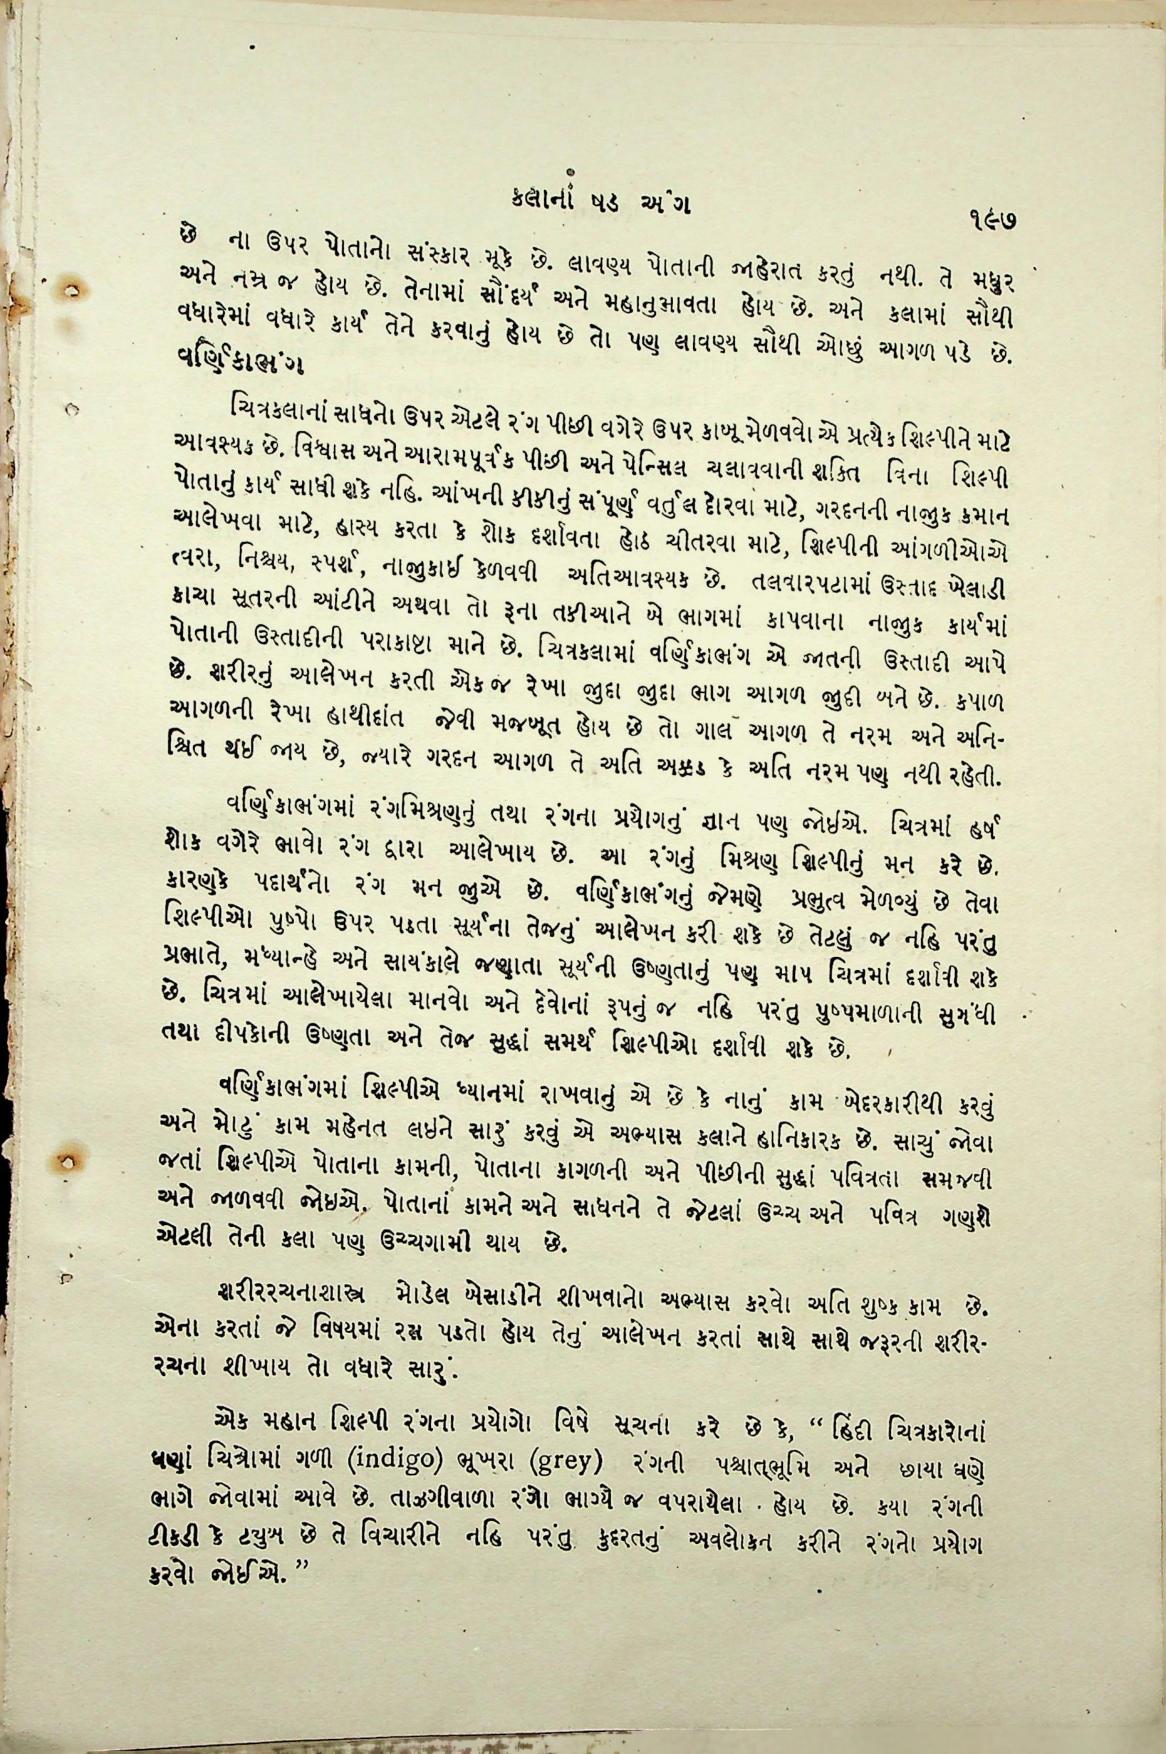 કલાનાં ષડ અંગ
૧૯૭
છે ના ઉપર પોતાનો સંસ્કાર મૂકે છે. લાવણ્ય પોતાની જાહેરાત કરતું નથી. તે મધુર
અને નમ્ર જ હોય છે. તેનામાં સૌંદર્ય અને મહાનુભાવતા હોય છે. અને કલામાં સૌથી
વધારેમાં વધારે કાર્ય તેને કરવાનું હોય છે તો પણ લાવણ્ય સૌથી ઓછું આગળ પડે છે.
વર્ણિકાભંગ
ચિત્રકલાનાં સાધનો ઉપર એટલે રંગ પીછી વગેરે ઉપર કાબૂ મેળવવો એ પ્રત્યેક શિલ્પીને માટે
આવશ્યક છે. વિશ્વાસ અને આરામપૂર્વક પીછી અને પેન્સિલ ચલાવવાની શક્તિ વિના શિલ્પી
પોતાનું કાર્ય સાધી શકે નહિ. આંખની કીકીનું સંપૂર્ણ વર્તુલ દોરવા માટે, ગરદનની નાજુક કમાન
આલેખવા માટે, હાસ્ય કરતા કે શોક દર્શાવતા હોઠ ચીતરવા માટે, શિલ્પીની આંગળીઓએ
ત્વરા, નિશ્ચય, સ્પર્શ, નાજુકાઈ કેળવવી અતિઆવશ્યક છે. તલવારપટામાં ઉસ્તાદ ખેલાડી
કાચા સૂતરની આંટીને અથવા તો રૂના તકીઆને બે ભાગમાં કાપવાના નાજુક કાર્યમાં
પોતાની ઉસ્તાદીની પરાકાષ્ટા માને છે. ચિત્રકલામાં વર્ણિકાભંગ એ જાતની ઉસ્તાદી આપે
છે. શરીરનું આલેખન કરતી એક જ રેખા જુદા જુદા ભાગ આગળ જુદી બને છે. કપાળ
આગળની રેખા હાથીદાંત જેવી મજબૂત હોય છે તો ગાલ આગળ તે નરમ અને અનિ-
શ્ચિત થઈ જાય છે, જ્યારે ગરદન આગળ તે અતિ અક્કડ કે અતિ નરમ પણ નથી રહેતી.
વર્ણિકાભંગમાં રંગમિશ્રણનું તથા રંગના પ્રયોગનું જ્ઞાન પણ જોઇએ. ચિત્રમાં હર્ષ
શોક વગેરે ભાવો રંગ દ્વારા આલેખાય છે. આ રંગનું મિશ્રણ શિલ્પીનું મન કરે છે.
કારણકે પદાર્થનો રંગ મન જુએ છે. વર્ણિકાભંગનું જેમણે પ્રભુત્વ મેળવ્યું છે તેવા
શિલ્પીઓ પુષ્પો ઉપર પડતા સૂર્યના તેજનું આલેખન કરી શકે છે તેટલું જ નહિ પરંતુ
પ્રભાતે, મધ્યાન્હે અને સાયંકાલે જણાતા સૂર્યની ઉષ્ણતાનું પણ માપ ચિત્રમાં દર્શાવી શકે
છે. ચિત્રમાં આલેખાયેલા માનવો અને દેવોનાં રૂપનું જ નહિ પરંતુ પુષ્પમાળાની સુગંધી
તથા દીપકોની ઉષ્ણતા અને તેજ સુદ્ધાં સમર્થ શિલ્પીઓ દર્શાવી શકે છે.
વર્ણિકાભંગમાં શિલ્પીએ ધ્યાનમાં રાખવાનું એ છે કે નાનું કામ બેદરકારીથી કરવું
અને મોટું કામ મહેનત લઇને સારું કરવું એ અભ્યાસ કલાને હાનિકારક છે. સાચું જોવા
જતાં શિલ્પીએ પોતાના કામની, પોતાના કાગળની અને પીછીની સુદ્ધાં પવિત્રતા સમજવી
અને જાળવવી જોઇએ. પોતાનાં કામને અને સાધનને તે જેટલાં ઉચ્ચ અને પવિત્ર ગણશે
એટલી તેની કલા પણ ઉચ્ચગામી થાય છે.
શરીરરચનાશાસ્ત્ર મોડેલ બેસાડીને શીખવાનો અભ્યાસ કરવો અતિ શુષ્ક કામ છે.
એના કરતાં જે વિષયમાં રસ પડતો હોય તેનું આલેખન કરતાં સાથે સાથે જરૂરની શરીર-
રચના શીખાય તો વધારે સારું.
એક મહાન શિલ્પી રંગના પ્રયોગો વિષે સૂચના કરે છે કે, “ હિંદી ચિત્રકારોનાં
ઘણાં ચિત્રોમાં ગળી (indigo) ભૂખરા (grey) રંગની પશ્ચાત્‌ભૂમિ અને છાયા ઘણે
ભાગે જોવામાં આવે છે. તાઝગીવાળા રંગો ભાગ્યે જ વપરાયેલા હોય છે. કયા રંગની
ટીકડી કે ટયુબ છે તે વિચારીને નહિ પરંતુ કુદરતનું અવલોકન કરીને રંગનો પ્રયોગ
કરવો જોઈએ. ”